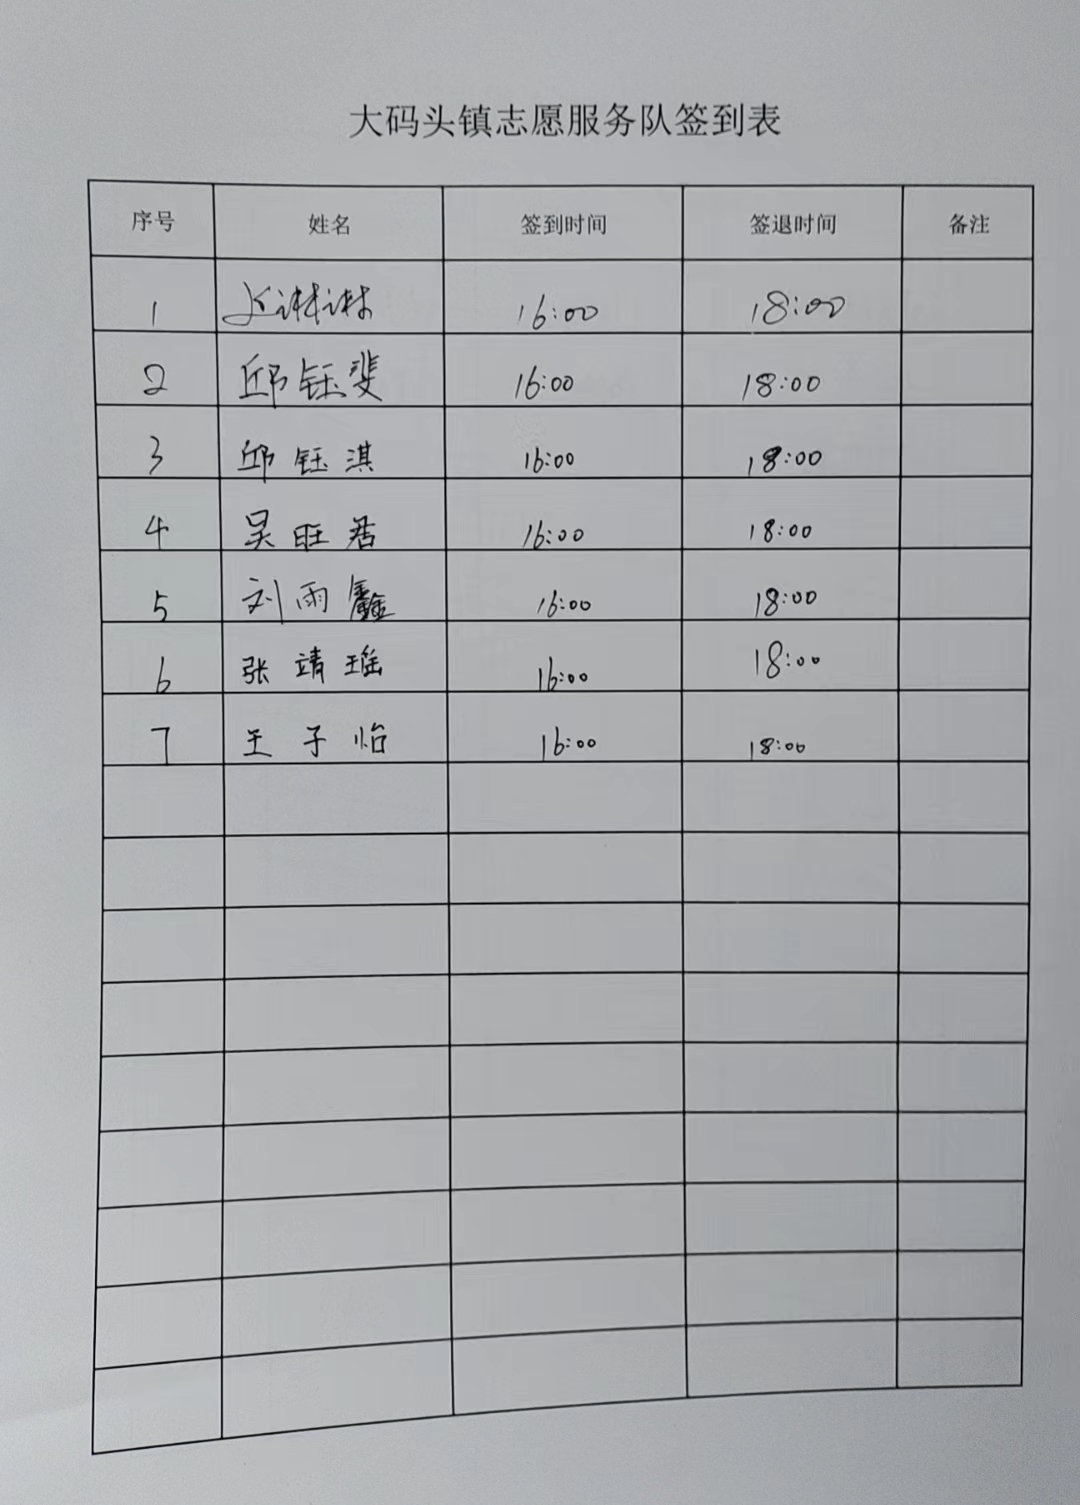 大码头镇志愿服务队签到表
序号 姓名 签到时间 签退时间 备注
1 16:00 18:00
2 邱钰斐 16:00 18:00
3 邱钰淇 16:00 18:00
4 吴旺君 16:00 18:00
5 刘雨鑫 16:00 18:00
6 张靖瑶 16:00 18:00
7 王子怡 16:00 18:00